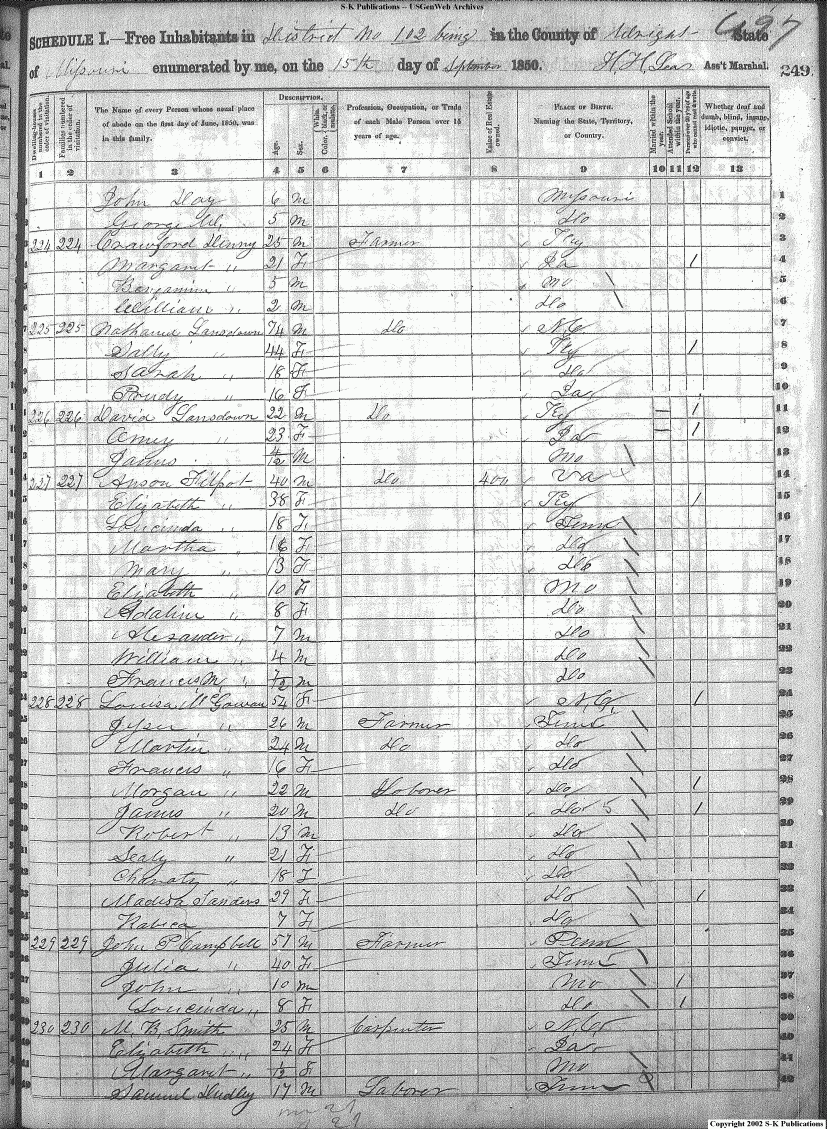 S-K Publications -- USGenWeb Archives
697
SCHEDULE I.—Free Inhabitants in District No 112 being in the County of Wright State
of Missouri enumerated by me, on the 15th day of September 1850. H H Ass't Marshal. 249
Dwelling-houses numbered in the order of visitation. Families numbered in the order of visitation. The Name of every Person whose usual place of abode on the first day of June, 1850, was in this family. DESCRIPTION. Age. Sex. Color White, black, or mulatto. Profession, Occupation, or Trade of each Male Person over 15 years of age. Value of Real Estate owned. PLACE OF BIRTH. Naming the State, Territory, or Country. Married within the year. Attended School within the year. Persons over 20 y'rs of age who cannot read & write. Whether deaf and dumb, blind, insane, idiotic, pauper, or convict.
1 2 3 4 5 6 7 8 9 10 11 12 13
John 6 M Missouri 1
George 5 M Do 2
224 224 Crawford 25 M Farmer Ky 3
Margaret " 21 F 1 4
Benjamin " 5 M Mo 5
William " 2 M Do 6
225 225 Nathaniel Lansdown 74 M Do N.C 7
Sally " 44 F Ky 1 8
Sarah " 18 F Do 9
" 16 F 10
226 226 David Lansdown 22 M Do Ky — 1 11
Amey " 23 F — 1 12
James 4/12 M Mo 13
227 227 Anson Filpot 40 M Do 400 Va 14
Elizabeth " 38 F Ky 1 15
Lucinda " 18 F Tenn 16
Martha " 16 F Do 17
Mary " 13 F Do 18
Elizabeth " 10 F Mo 19
Adaline " 8 F Do 20
Alexander " 7 M Do 21
William " 4 M Do 22
Francis M " 7/12 M Do 23
228 228 Louisa McGowan 54 F N.C, 1 24
26 M Farmer Tenn 25
Martin " 24 M Do Do 26
Francis " 16 F Do 27
Morgan " 22 M Laborer Do 1 28
James " 20 M Do Do 5 1 29
Robert " 13 M Do 30
Sealy " 21 F Do 31
" 18 F Do 32
Sanders 29 F Do 1 33
7 F Do 34
229 229 John P Campbell 57 M Farmer Penn 35
Julia " 40 F Tenn 36
John " 10 M Mo 1 37
Loucinda " 8 F Do 1 38
230 230 M. B. Smith 25 M Carpenter N.C 39
Elizabeth " 24 F 40
Margaret " F Mo 41
Samuel Dudley 17 M Laborer Tenn 42
Copyright 2002 S-K Publications